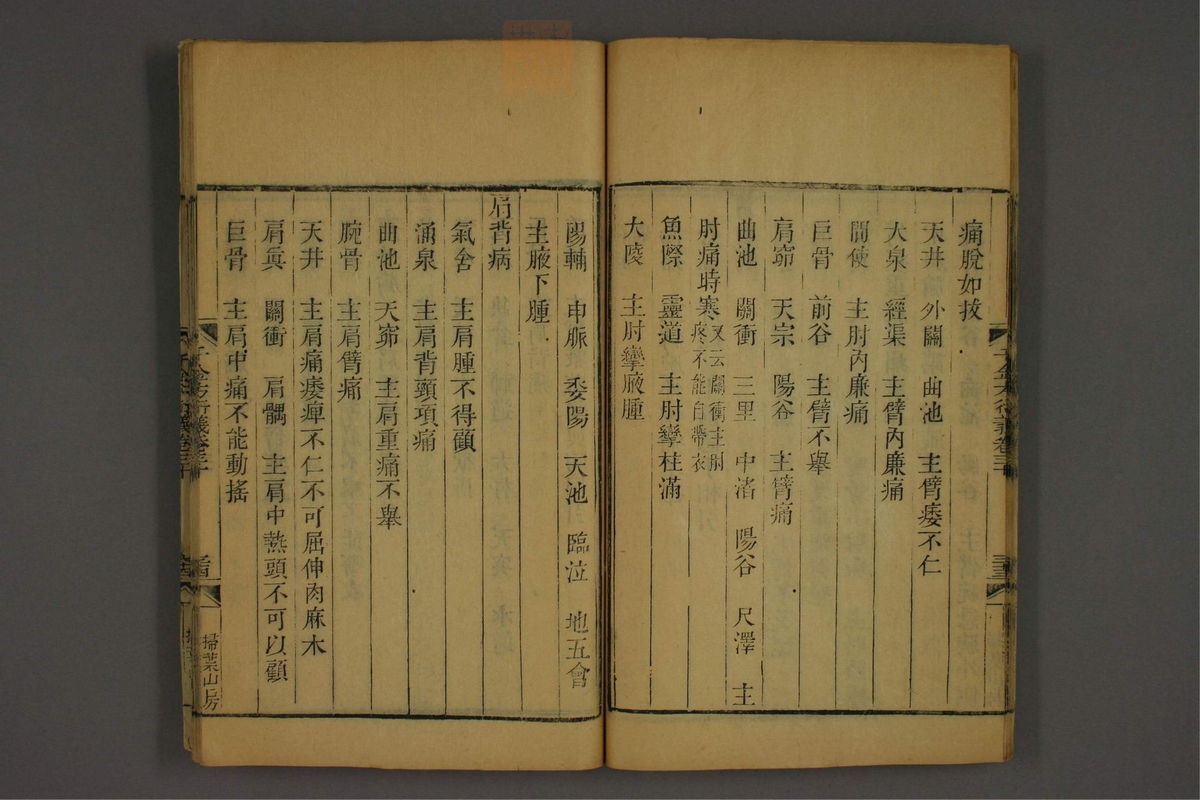 痛脫如拔
天井 外關 曲池 主臂痿不仁
大泉 經渠 主臂內廉痛
間使 主肘內廉痛
巨骨 前谷 主臂不舉
肩窌 天宗 陽谷 主臂痛
曲池 關衝 三里 中渚 陽谷 尺澤 主
肘痛時寒又云關衝主肘疼不能自帶衣
魚際 靈道 主肘攣柱滿
大陵 主肘攣腋腫
陽輔 申脈 委陽 天池 臨泣 地五會
主腋下腫
肩背病
氣舍 主肩腫不得顧
涌泉 主肩背頸項痛
曲池 天窌 主肩重痛不舉
腕骨 主肩臂痛
天井 主肩痛痿痺不仁不可屈伸肉麻木
肩貞 關衝 肩髃 主肩中熱頭不可以顧
巨骨 主肩中痛不能動搖
千金方衍義卷三十
三十四
掃葉山房